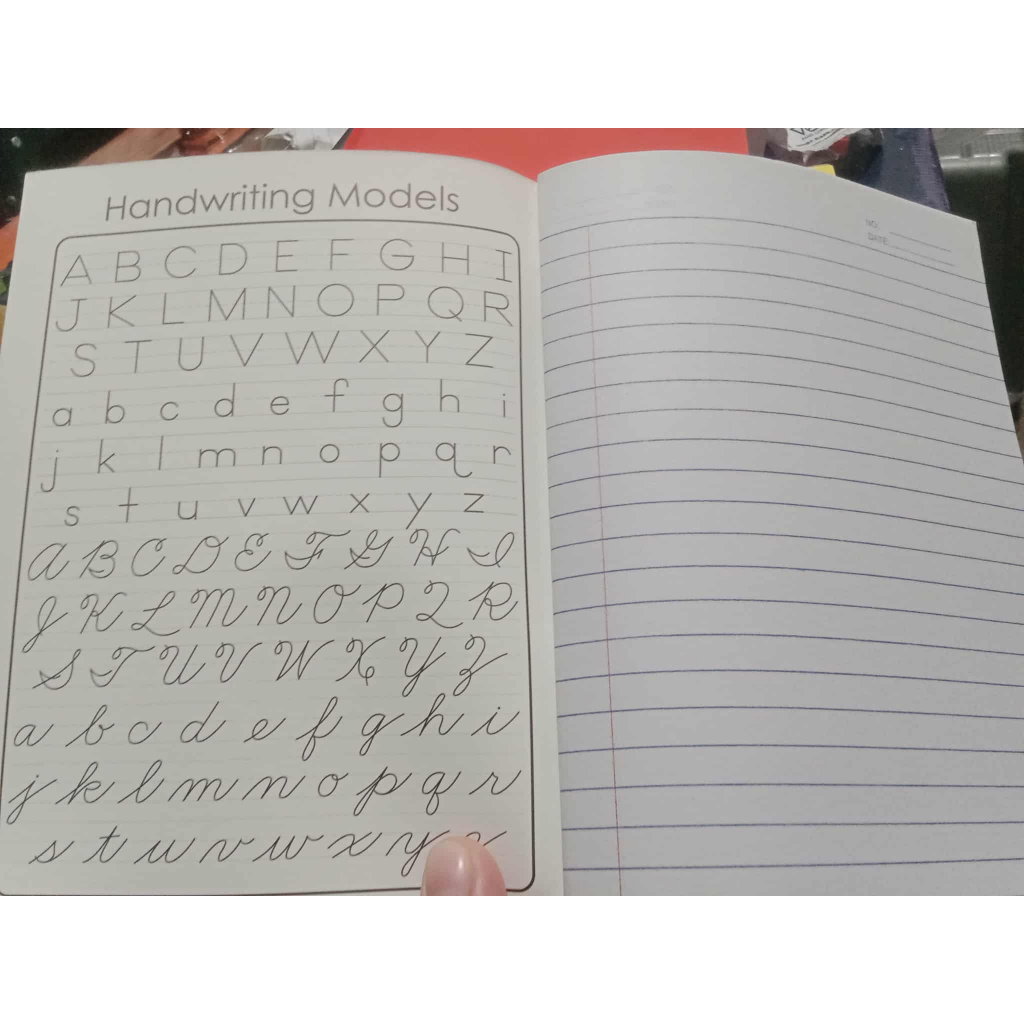 Handwriting Models
A B C D E F G H I
J K L M N O P Q R
S T U V W X Y Z
a b c d e f g h i
j k l m n o p q r
s t u v w x y z
A B C D E F G H I
J K L M N O P Q R
S T U V W X Y Z
a b c d e f g h i
j k l m n o p q r
s t u v w x y
NO.
DATE